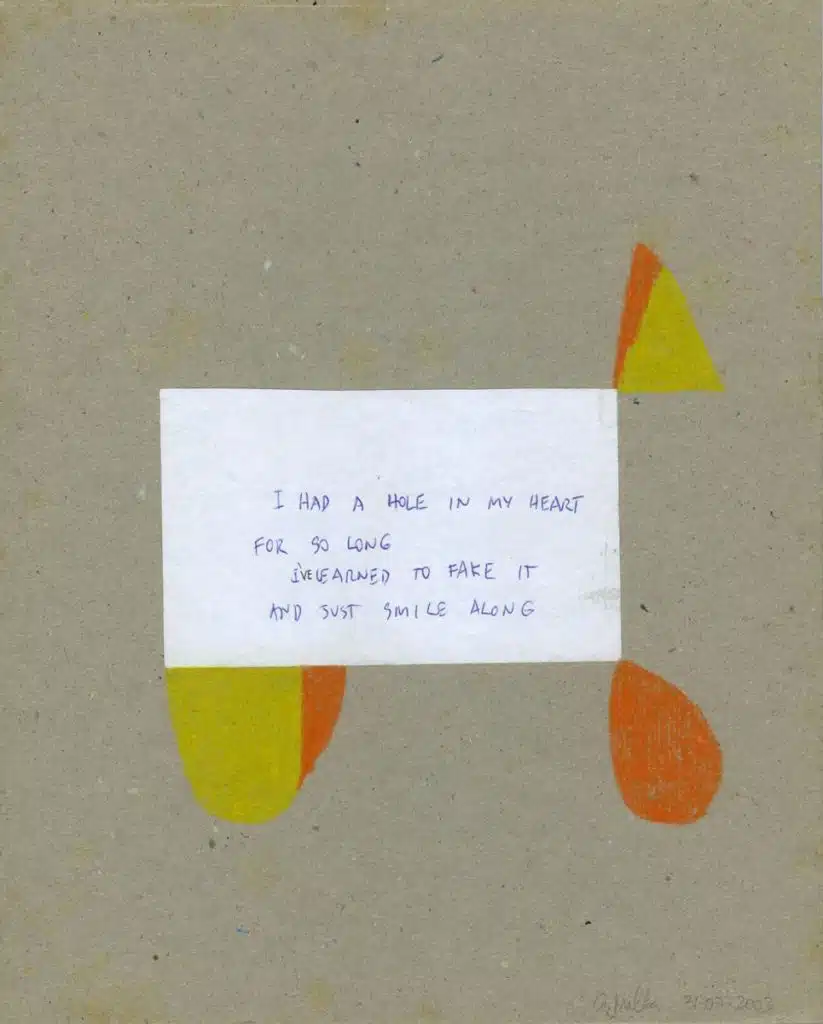 I HAD A HOLE IN MY HEART
FOR SO LONG
I'VE LEARNED TO FAKE IT
AND JUST SMILE ALONG